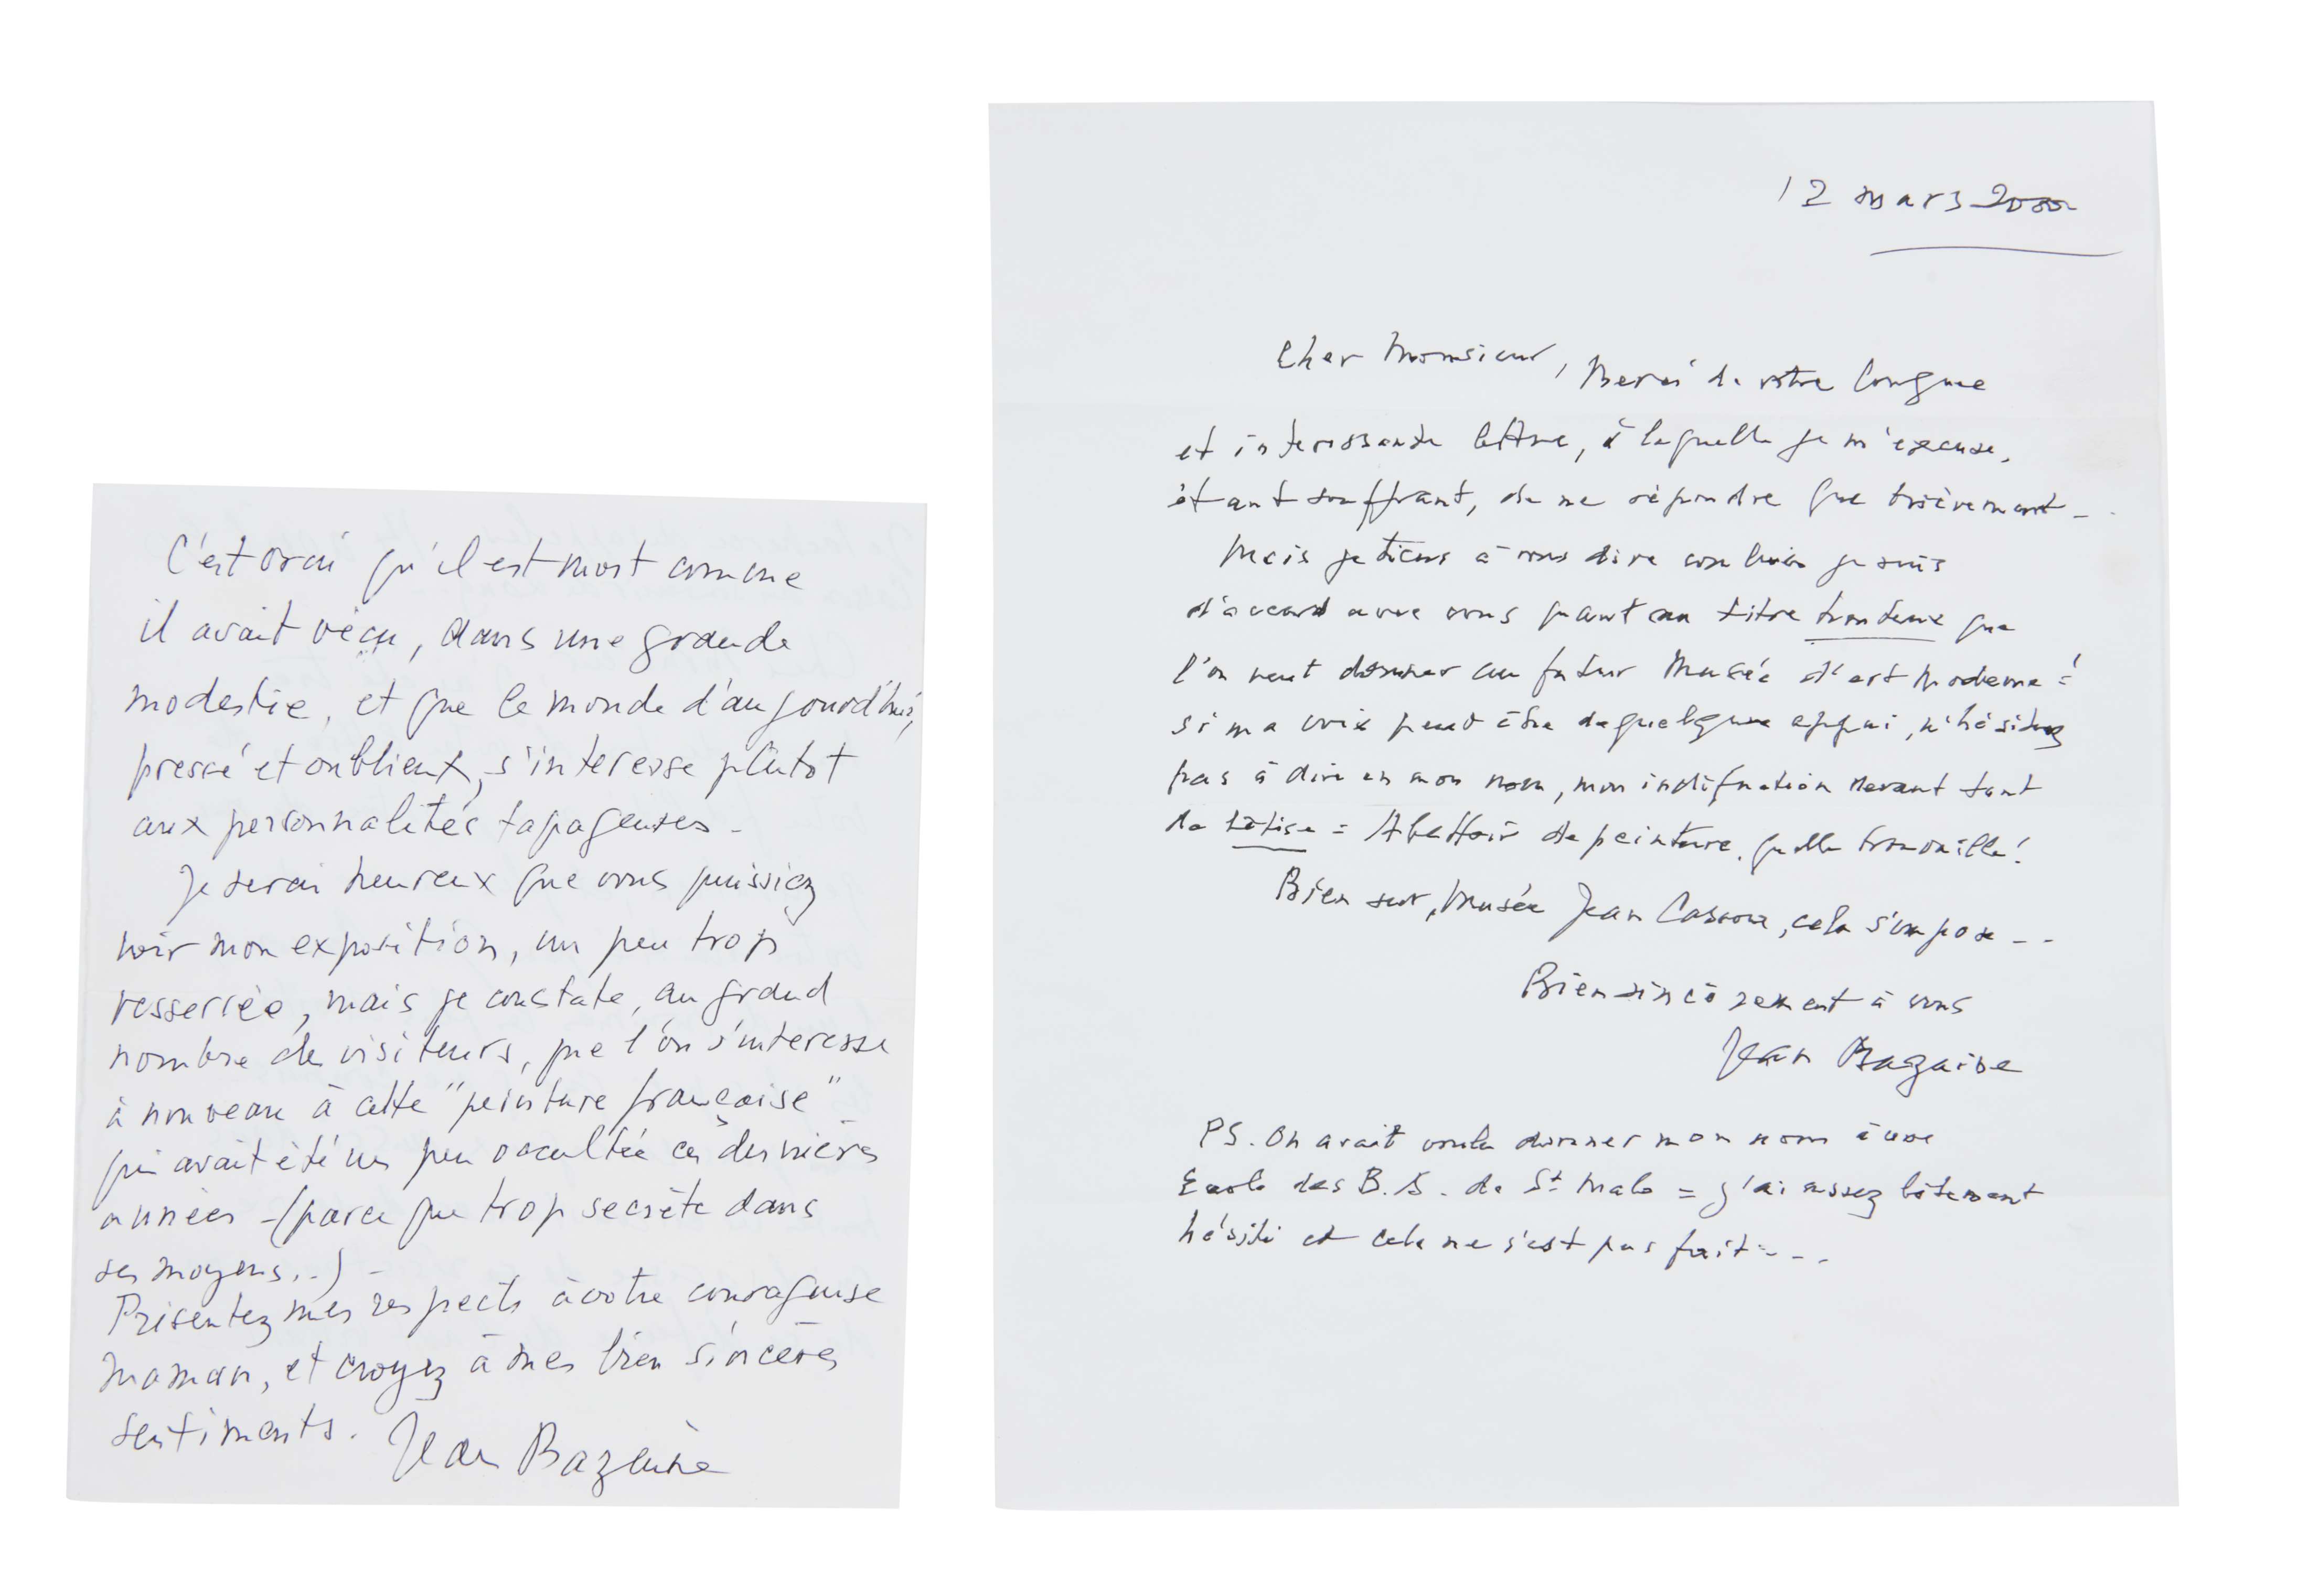 C'est vrai qu'il est mort comme
il avait vécu, dans une grande
modestie, et que le monde d'aujourd'hui,
pressé et oublieux, s'interesse plutôt
aux personnalités tapageuses -
Je serai heureux que vous puissiez
voir mon exposition, un peu trop
resserrée, mais je constate, au grand
nombre de visiteurs, que l'on s'interesse
à nouveau à cette "peinture française"
qui avait été un peu occultée ces dernières
années - (parce que trop secrète dans
ses moyens..) -
Présentez mes respects à votre courageuse
maman, et croyez à mes bien sincères
sentiments. Jean Bazaine
12 mars 2000
Cher Monsieur, Merci de votre longue
et interessante lettre, à laquelle je m'excuse,
étant souffrant, de ne répondre que brièvement -
Mais je tiens à vous dire combien je suis
d'accord avec vous quant au titre honteux que
l'on veut donner au futur Musée d'art Moderne :
si ma voix peut être de quelque appui, n'hésitez
pas à dire en mon nom, mon indignation devant tant
de bêtise = Abattoir de peinture, quelle trouvaille !
Bien sur, Musée Jean Cassou, cela s'impose - -
Bien sincèrement à vous
Jean Bazaine
PS. On avait voulu donner mon nom à une
Ecole des B.A. de St Malo = j'ai assez bêtement
hésité et cela ne s'est pas fait - - -